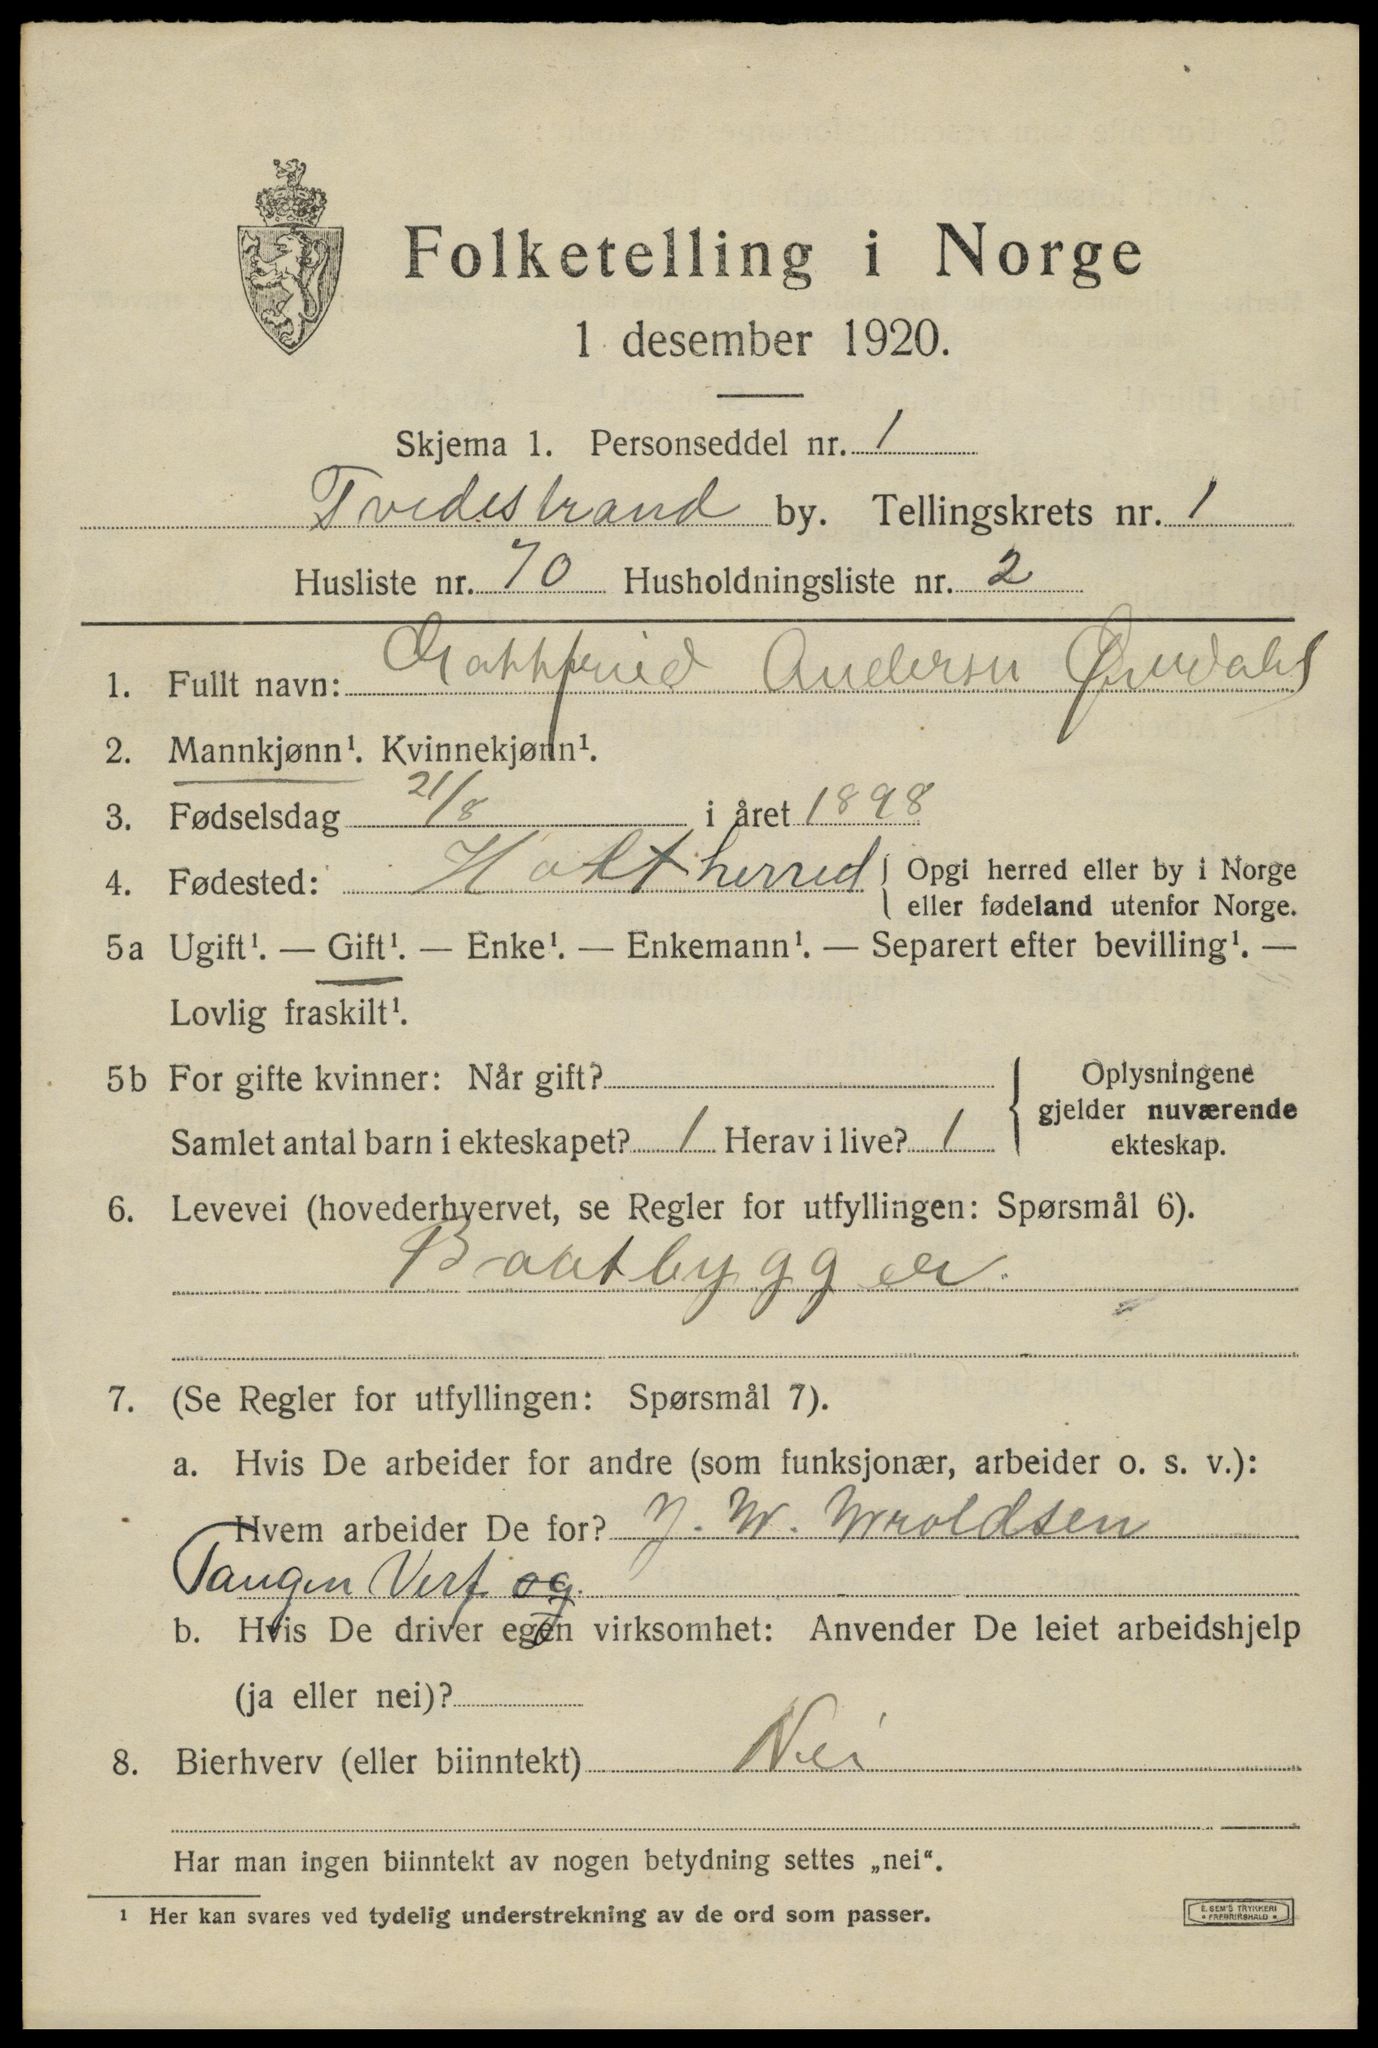 Folketelling i Norge
1 desember 1920.
Skjema 1. Personseddel nr. 1
Tvedestrand by. Tellingskrets nr. 1
Husliste nr. 70 Husholdningsliste nr. 2
1. Fullt navn: Gottfried Andersen
2. Mannkjønn¹. Kvinnekjønn¹.
3. Fødselsdag 21/8 i året 1898
4. Fødested: Holt herred { Opgi herred eller by i Norge
eller fødeland utenfor Norge.
5a Ugift¹. — Gift¹. — Enke¹. — Enkemann¹. — Separert efter bevilling¹. —
Lovlig fraskilt¹.
5b For gifte kvinner: Når gift? { Oplysningene
gjelder nuværende
Samlet antal barn i ekteskapet? 1 Herav i live? 1 ekteskap.
6. Levevei (hovederhvervet, se Regler for utfyllingen: Spørsmål 6).
Baatbygger.
7. (Se Regler for utfyllingen: Spørsmål 7).
a. Hvis De arbeider for andre (som funksjonær, arbeider o. s. v.):
Hvem arbeider De for? J. W. Wroldsen
Tangen Verf og
b. Hvis De driver egen virksomhet: Anvender De leiet arbeidshjelp
(ja eller nei)?
8. Bierhverv (eller biinntekt) Nei
Har man ingen biinntekt av nogen betydning settes „nei“.
¹ Her kan svares ved tydelig understrekning av de ord som passer.
E. SEM'S TRYKKERI
• FREDRIKSHALD •